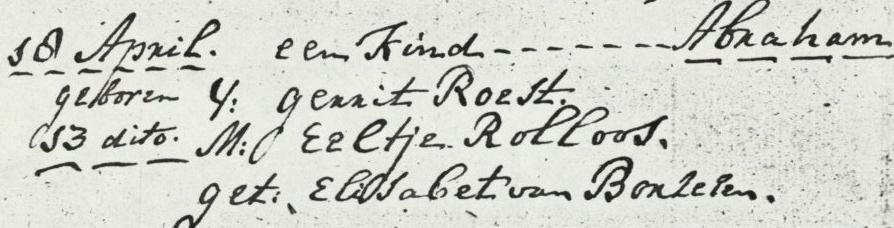 18 April. een Kind - - - - - - - Abraham
geboren V: gerrit Roest.
13 dito. M: Eeltje Rolloos.
get: Elisabet van